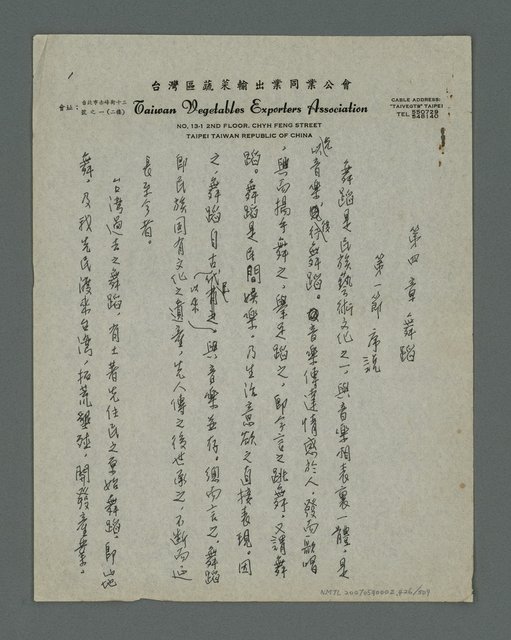 台灣區蔬菜輸出業同業公會
會址：台北市赤峰街十三號之一(二樓)
Taiwan Vegetables Exporters Association
NO, 13-1 2ND FLOOR. CHYH FENG STREET
TAIPEI TAIWAN REPUBLIC OF CHINA
CABLE ADDRESS:
"TAIVEGTS" TAIPEI
TEL
第四章 舞蹈
第一節 序說
舞蹈是民族藝術文化之一，與音樂相表裏一體，是
以音樂後舞蹈。音樂傳達情感於人，發而歌唱
，興而揚手舞之，舉足蹈之，即今言之跳舞，又謂舞
蹈。舞蹈是民間娛樂，乃生活意欲之直接表現。因
之，舞蹈自古以來與音樂並存。總而言之，舞蹈
即民族固有文化之遺產，先人傳之後世承之，不斷而延
長至今者。
台灣過去之舞蹈，有土著先住民之原始舞蹈，即山地
舞，及我先民渡來台灣，拓荒墾殖，開發產業。
NMTL 20070540002.426/509